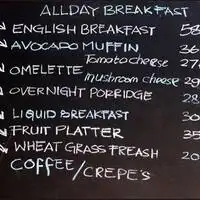 ALLDAY BREAKFAST
ENGLISH BREAKFAST 58
AVOCADO MUFFIN 36
OMELETTE Tomato cheese 27
mushroom cheese 29
OVERNIGHT PORRIDGE 28
LIQUID BREAKFAST 30
FRUIT PLATTER 35
WHEAT GRASS FREASH 20
COFFEE/CREPE'S